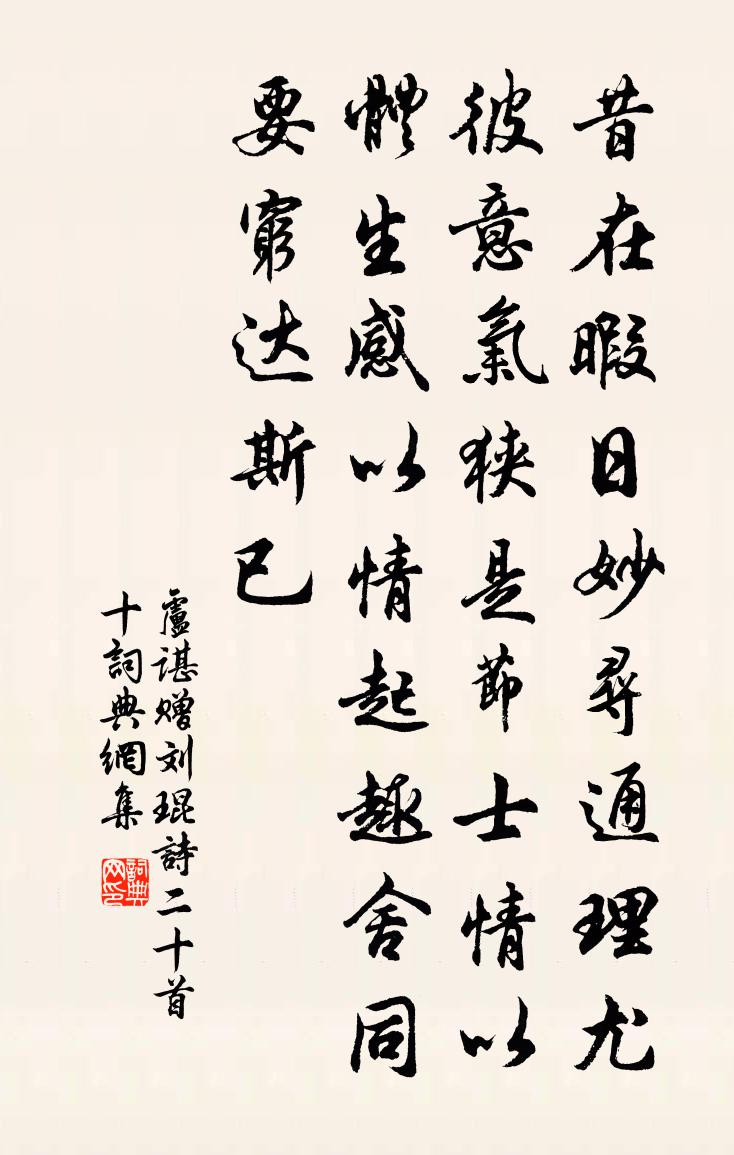 昔在暇日妙尋通理尤
彼意氣狹是節士情以
體生感以情起趣舍同
要窮达斯已
盧谌赠刘琨詩二十首
十詞典網集
詞典网印